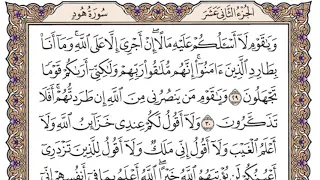 سُورَةُ هُودٍ
الجُزْءُ الثَّانِي عَشَرَ
وَيَٰقَوْمِ لَآ أَسْـَٔلُكُمْ عَلَيْهِ مَالًا إِنْ أَجْرِىَ إِلَّا عَلَى ٱللَّهِ وَمَآ أَنَا۠
بِطَارِدِ ٱلَّذِينَ ءَامَنُوٓا۟ إِنَّهُم مُّلَٰقُوا۟ رَبِّهِمْ وَلَٰكِنِّىٓ أَرَىٰكُمْ قَوْمًا
تَجْهَلُونَ ٢٩ وَيَٰقَوْمِ مَن يَنصُرُنِى مِنَ ٱللَّهِ إِن طَرَدتُّهُمْ أَفَلَا
تَذَكَّرُونَ ٣٠ وَلَآ أَقُولُ لَكُمْ عِندِى خَزَآئِنُ ٱللَّهِ وَلَآ
أَعْلَمُ ٱلْغَيْبَ وَلَآ أَقُولُ إِنِّى مَلَكٌ وَلَآ أَقُولُ لِلَّذِينَ تَزْدَرِىٓ
أَعْيُنُكُمْ لَن يُؤْتِيَهُمُ ٱللَّهُ خَيْرًا ٱللَّهُ أَعْلَمُ بِمَا فِىٓ أَنفُسِهِمْ إِنِّىٓ